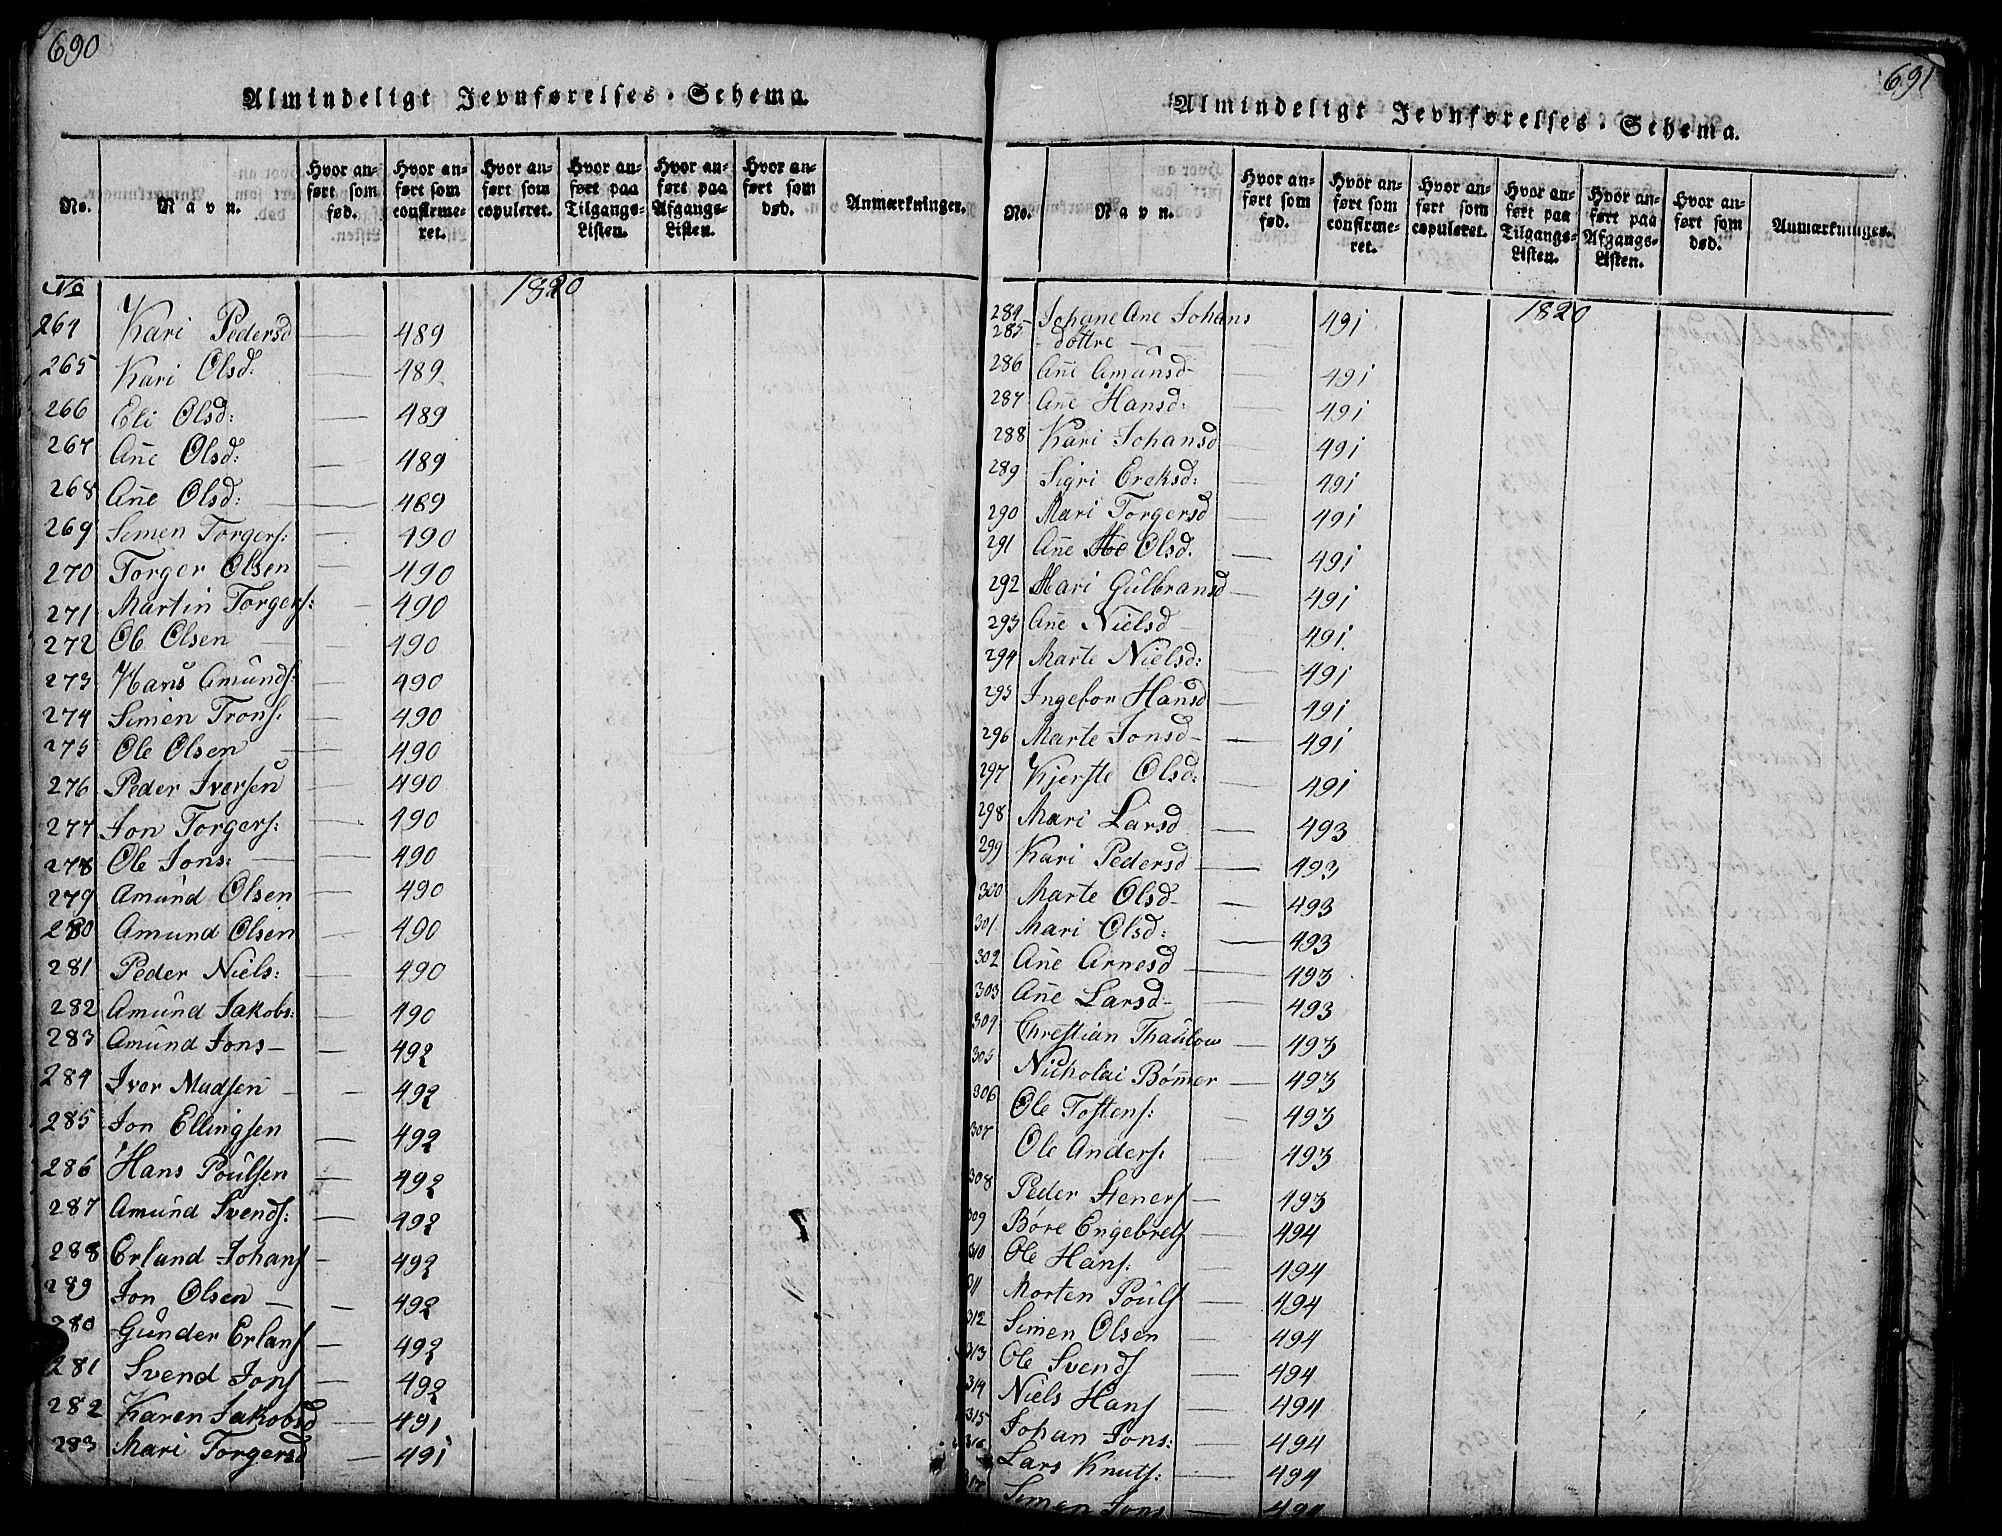 690
Almindeligt Jevnførelses-Schema.
No.
Navn.
Hvor anført som fød.
Hvor anført som confirmeret.
Hvor anført som copuleret.
Hvor anført paa Tilgangs-Listen.
Hvor anført paa Afgangs-Listen.
Hvor anført som død.
Anmærkninger.
No 1820
264 Kari Pedersd 489
265 Kari Olsd: 489
266 Eli Olsd: 489
267 Ane Olsd: 489
268 Ane Olsd: 489
269 Simen Torgers: 490
270 Torger Olsen 490
271 Martin Torgers: 490
272 Ole Olsen 490
273 Hans Amunds: 490
274 Simen Trons: 490
275 Ole Olsen 490
276 Peder Iversen 490
277 Jon Torgers: 490
278 Ole Jons: 490
279 Amund Olsen 490
280 Amund Olsen 490
281 Peder Niels: 490
282 Amund Jakobs: 490
283 Amund Jons 492
284 Iver Madsen 492
285 Jon Ellingsen 492
286 Hans Poulsen 492
287 Amund Svends: 492
288 Erland Johans 492
289 Jon Olsen 492
280 Gunder Erlans 492
281 Svend Jons 492
282 Karen Jakobsd 491
283 Mari Torgersd 491
691
Almindeligt Jevnførelses-Schema.
No.
Navn.
Hvor anført som fød.
Hvor anført som confirmeret.
Hvor anført som copuleret.
Hvor anført paa Tilgangs-Listen.
Hvor anført paa Afgangs-Listen.
Hvor anført som død.
Anmærkninger.
1820
284 Johane Ane Johans 491
285 dottre
286 Ane Amunsd 491
287 Ane Hansd: 491
288 Kari Johansd 491
289 Sigri Ereksd: 491
290 Mari Torgersd 491
291 Ane Olsd. 491
292 Mari Gulbransd 491
293 Ane Nielsd 491
294 Marte Nielsd: 491
295 Ingebor Hansd 491
296 Marte Jonsd 491
297 Kjerste Olsd: 491
298 Mari Larsd 493
299 Kari Pedersd 493
300 Marte Olsd 493
301 Mari Olsd: 493
302 Ane Arnesd 493
303 Ane Larsd 493
304 Chrestian Thaulow 493
305 Nicholai Bømer 493
306 Ole Tostens: 493
307 Ole Anders: 493
308 Peder Steners 493
309 Børe Engebrets 494
310 Ole Hans: 494
311 Morten Pouls 494
312 Simen Olsen 494
313 Ole Svends 494
314 Niels Hans 494
315 Johan Jons: 494
316 Lars Knuts: 494
317 Simen Jons 494